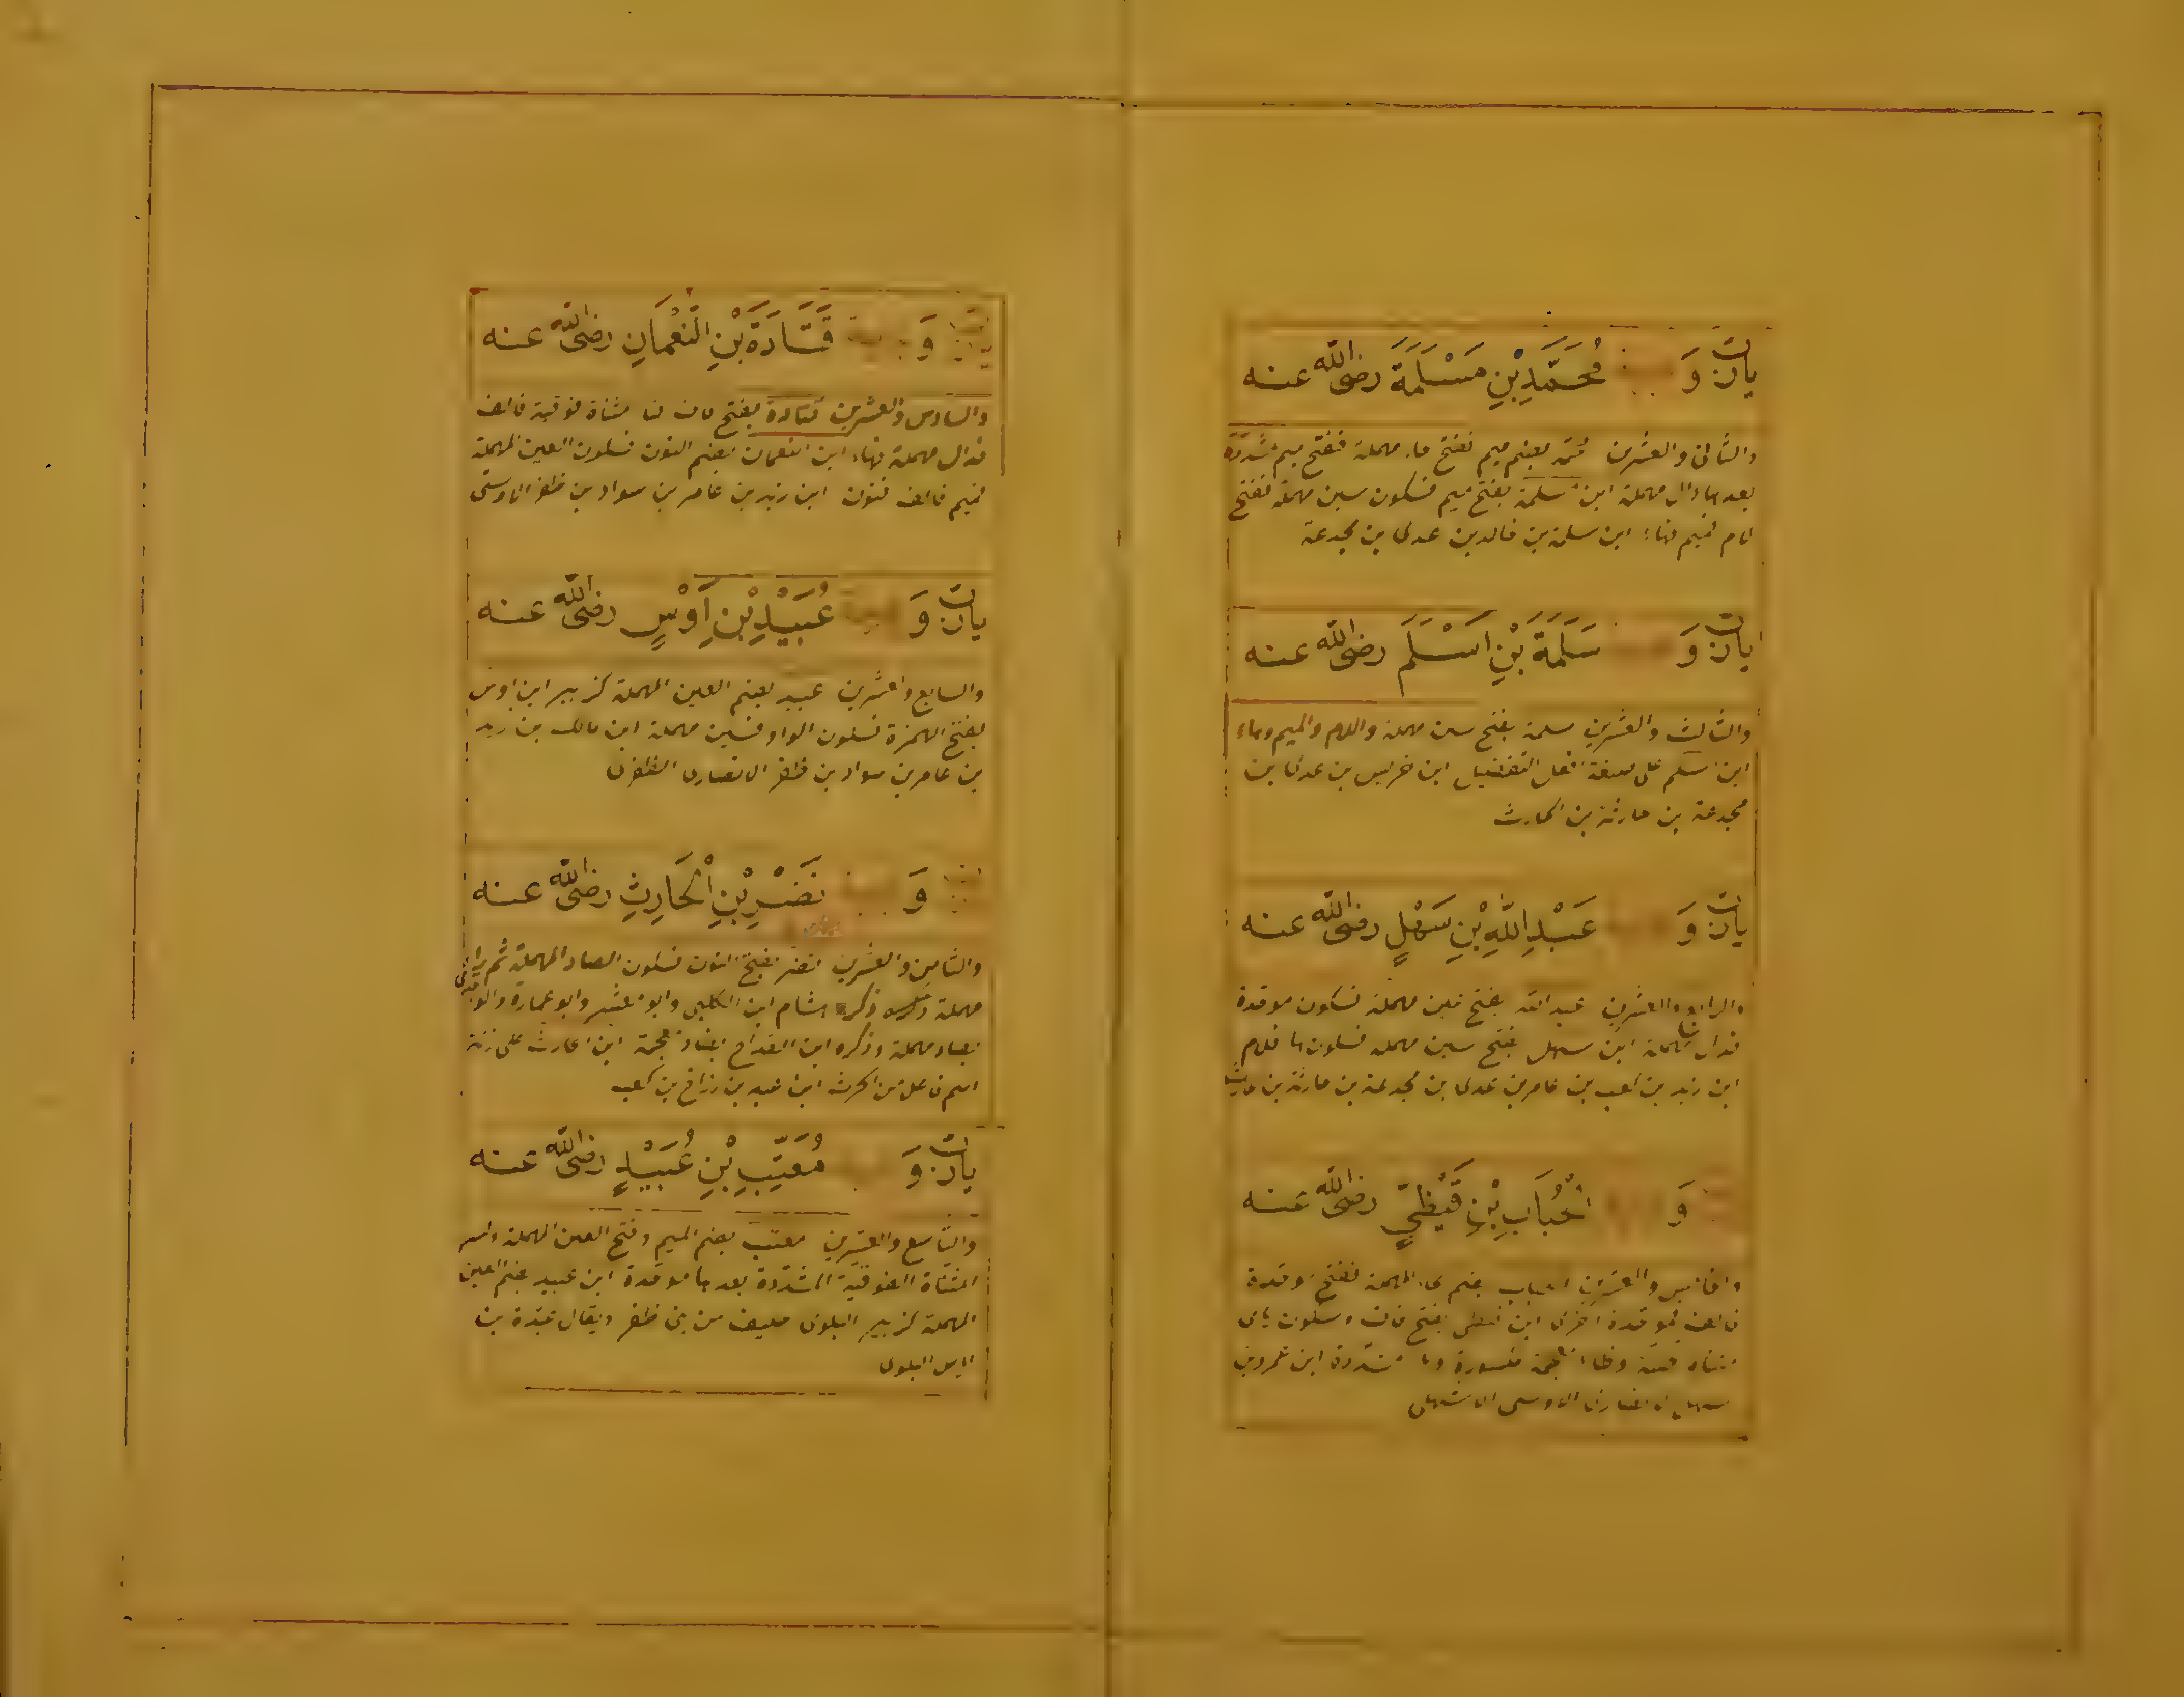 يارب وَ مُحَمَّدِ بْنِ مَسْلَمَةَ رضى الله عنه
والثانى والعشرين محمد بضم ميم ففتح حاء مهملة ففتح ميم مشددة
بعدها دال مهملة ابن مسلمة بفتح ميم فسكون سين مهملة ففتح
لام فميم فهاء ابن سلمة بن خالد بن عدى بن مجدعة
يارب وَ سَلَمَةَ بْنِ اَسْلَمَ رضى الله عنه
والثالث والعشرين سلمة بفتح سين مهملة واللام والميم وهاء
ابن اسلم على صيغة افعل التفضيل ابن حريس بن عدى بن
مجدعة بن حارثة بن الحارث
يارب وَ عَبْدِ اللّٰهِ بْنِ سَهْلٍ رضى الله عنه
والرابع والعشرين عبد الله بفتح عين مهملة فسكون موحدة
فدال مهملة ابن سهل بفتح سين مهملة فسكون ها فلام
ابن زيد بن كعب بن عامر بن عدى بن مجدعة بن حارثة بن حارث
وَ الْحُبَابِ بْنِ قَيْظِيٍّ رضى الله عنه
والخامس والعشرين الحباب بضم حاء المهملة ففتح موحدة
فالف فموحدة اخرى ابن قيظى بفتح قاف وسكون ياى
مثناه تحتية وظاء معجمة مكسورة ويا مشددة ابن عمرو بن
سهل الانصارى الاوسى الاشهلى
وَ قَتَادَةَ بْنِ النُّعْمَانِ رضى الله عنه
والسادس والعشرين قتادة بفتح قاف فتا مثناة فوقية فالف
فدال مهملة فهاء ابن النعمان بضم النون فسكون العين المهملة
فميم فالف فنون ابن زيد بن عامر بن سواد بن ظفر الاوسى
يارب وَ عُبَيْدِ بْنِ اَوْسٍ رضى الله عنه
والسابع والعشرين عبيد بضم العين المهملة كزبير ابن اوس
بفتح الهمزة فسكون الواو فسين مهملة ابن مالك بن زيد
بن عامر بن سواد بن ظفر الانصارى الظفرى
وَ نَصْرِ بْنِ الْحَارِثِ رضى الله عنه
والثامن والعشرين نصر بفتح النون فسكون الصاد المهملة ثم راء
مهملة ذكره هشام ابن الكلبى وابو معشر وابو عمارة والواقدى
بصاد مهملة وذكره ابن القداح بضاد معجمة ابن الحارث على زنة
اسم فاعل من الحرث ابن عبد بن رزاح بن كعب
يارب وَ مُعَتِّبِ بْنِ عُبَيْدٍ رضى الله عنه
والتاسع والعشرين معتب بضم الميم وفتح العين المهملة وكسر
المثناة الفوقية المشددة بعدها موحدة ابن عبيد بضم العين
المهملة كزبير البلوى حليف من بنى ظفر ويقال عبدة بن
اياس البلوى